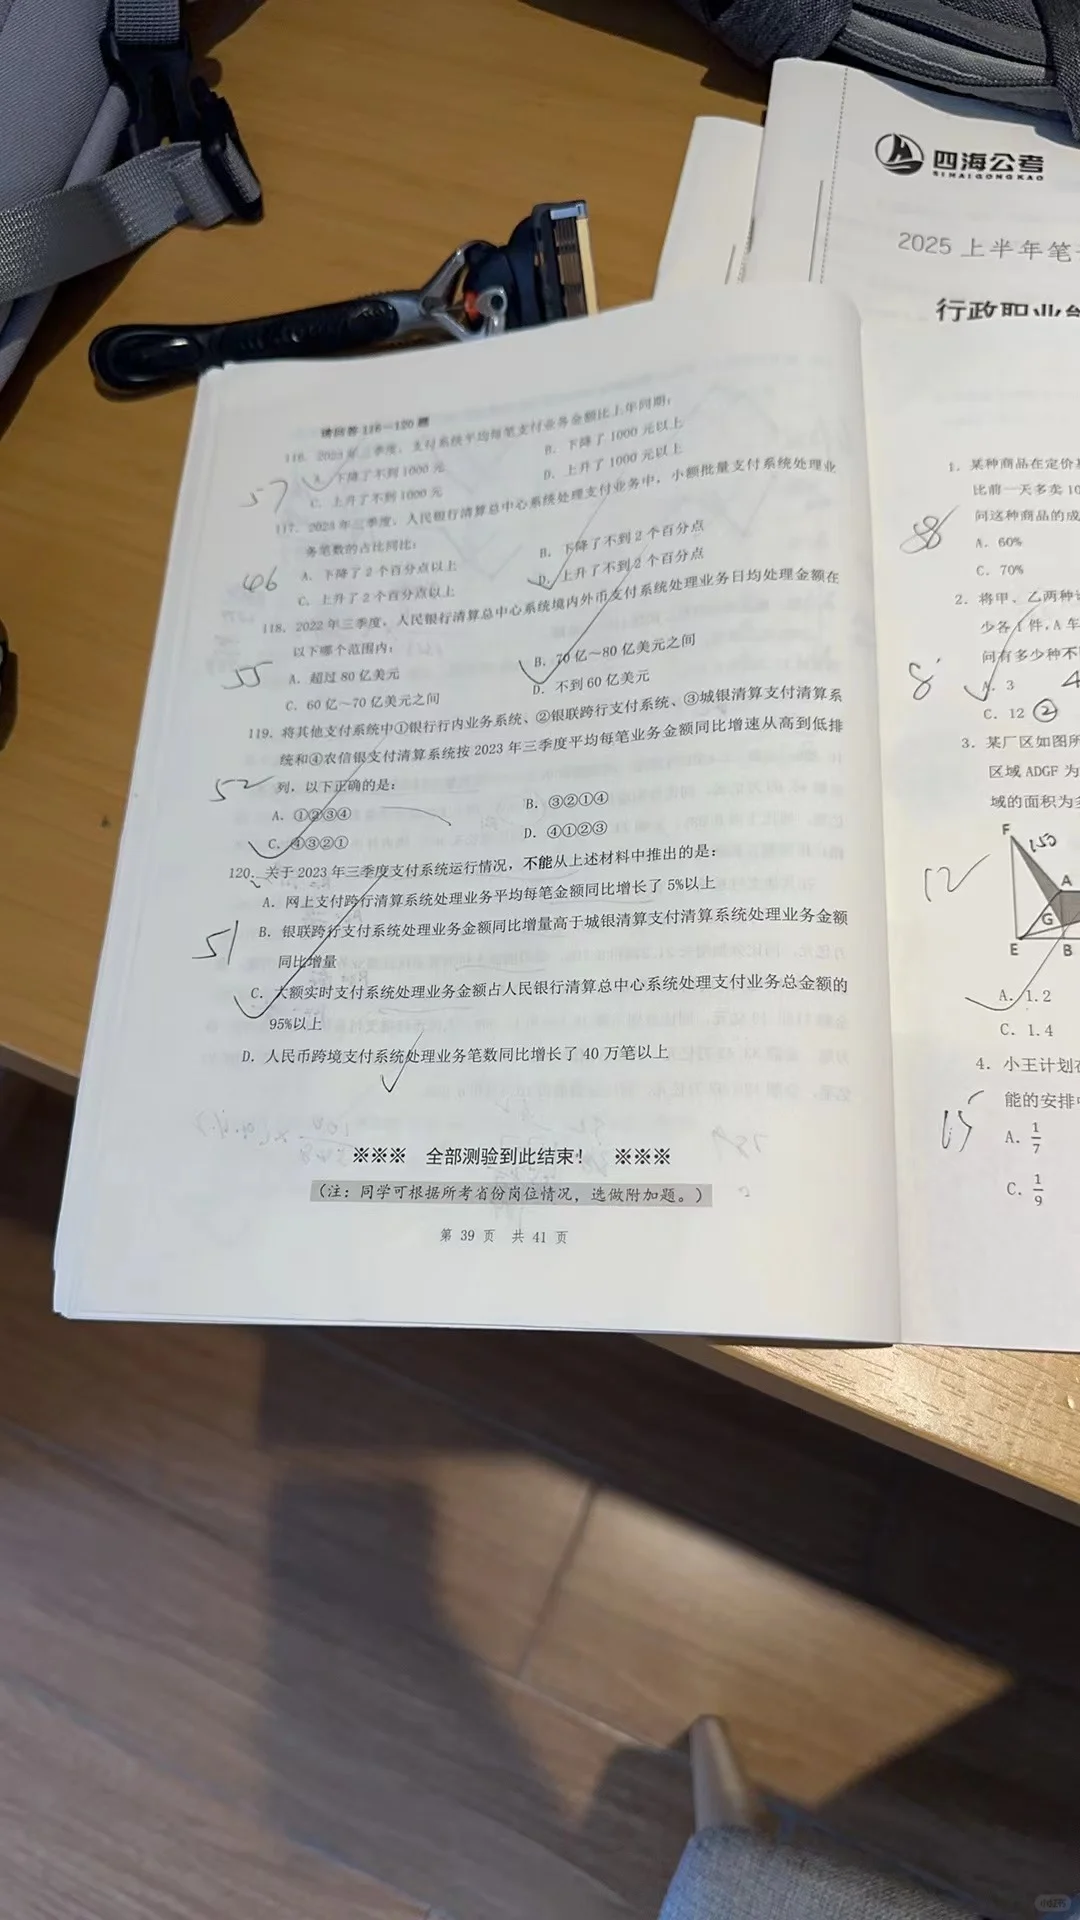 请回答 116—120 题
116. 2023 年三季度，支付系统平均每笔支付业务金额比上年同期：
A. 下降了不到 1000 元
B. 下降了 1000 元以上
C. 上升了不到 1000 元
D. 上升了 1000 元以上
57
117. 2023 年三季度，人民银行清算总中心系统处理支付业务中，小额批量支付系统处理业
务笔数的占比同比：
A. 下降了 2 个百分点以上
B. 下降了不到 2 个百分点
C. 上升了 2 个百分点以上
D. 上升了不到 2 个百分点
46
118. 2022 年三季度，人民银行清算总中心系统境内外币支付系统处理业务日均处理金额在
以下哪个范围内：
A. 超过 80 亿美元
B. 70 亿～80 亿美元之间
C. 60 亿～70 亿美元之间
D. 不到 60 亿美元
55
119. 将其他支付系统中①银行行内业务系统、②银联跨行支付系统、③城银清算支付清算系
统和④农信银支付清算系统按 2023 年三季度平均每笔业务金额同比增速从高到低排
列，以下正确的是：
A. ①②③④
B. ③②①④
C. ④③②①
D. ④①②③
52
120. 关于 2023 年三季度支付系统运行情况，不能从上述材料中推出的是：
A. 网上支付跨行清算系统处理业务平均每笔金额同比增长了 5%以上
B. 银联跨行支付系统处理业务金额同比增量高于城银清算支付清算系统处理业务金额
同比增量
51
C. 大额实时支付系统处理业务金额占人民银行清算总中心系统处理支付业务总金额的
95%以上
D. 人民币跨境支付系统处理业务笔数同比增长了 40 万笔以上
※※※ 全部测验到此结束！ ※※※
（注：同学可根据所考省份岗位情况，选做附加题。）
第 39 页 共 41 页
四海公考
SIHAIGONGKAO
2025 上半年笔
行政职业
1. 某种商品在定价
比前一天多卖 10
问这种商品的成
A. 60%
C. 70%
2. 将甲、乙两种
少各 1 件，A 车
问有多少种不
A. 3
C. 12 ②
8
3. 某厂区如图所
区域 ADGF 为
域的面积为
F
150
A
G
E
B
12
A. 1.2
C. 1.4
4. 小王计划在
能的安排中
A. 1/7
C. 1/9